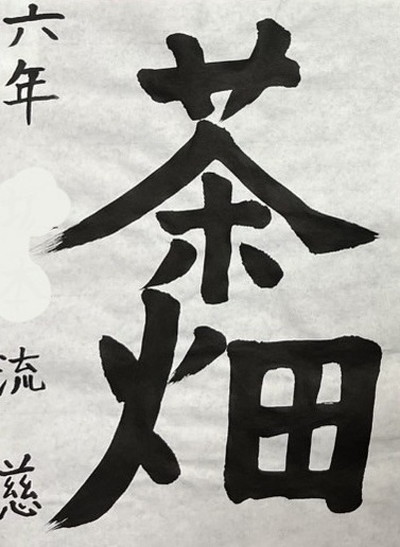 茶畑
六年
流慈